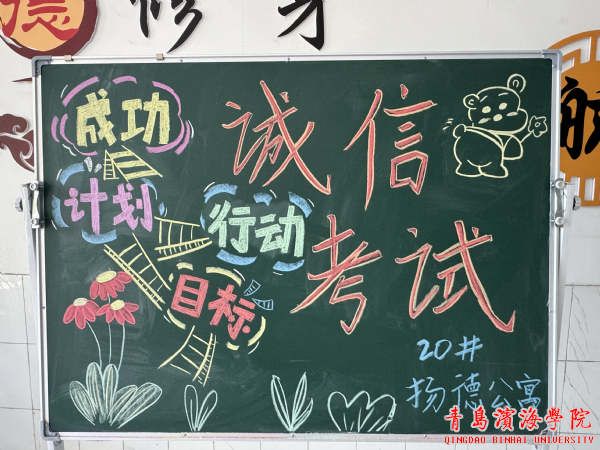 德 修身
成功
计划
行动
目标
诚信
考试
20井
扬德公寓
航
青岛濱海學院
QINGDAO BINHAI UNIVERSITY